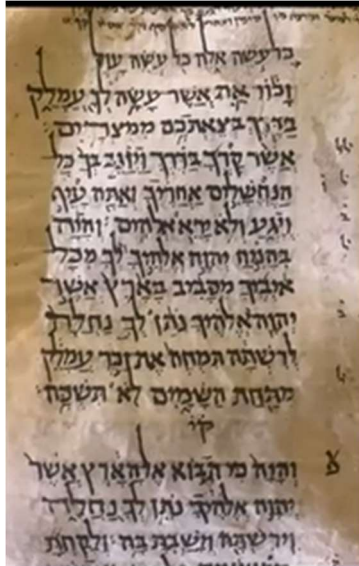 כל עשה אלה כל עשה עול
זכור את אשר עשה לך עמלק
בדרך בצאתכם ממצרים
אשר קרך בדרך ויזנב בך כל
הנחשלים אחריך ואתה עיף
ויגע ולא ירא אלהים והיה
בהניח יהוה אלהיך לך מכל
איביך מסביב בארץ אשר
יהוה אלהיך נתן לך נחלה
לרשתה תמחה את זכר עמלק
מתחת השמים לא תשכח
קי
והיה כי תבוא אל הארץ אשר
יהוה אלהיך נתן לך נחלה
וירשתה וישבת בה ולקחת